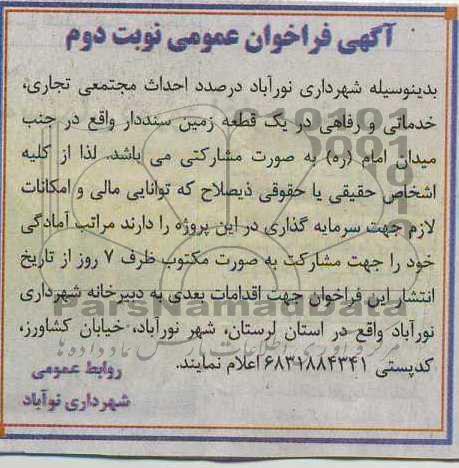 آگهی فراخوان عمومی نوبت دوم
بدینوسیله شهرداری نورآباد درصدد احداث مجتمعی تجاری،
خدماتی و رفاهی در یک قطعه زمین سنددار واقع در جنب
میدان امام (ره) به صورت مشارکتی می باشد. لذا از کلیه
اشخاص حقیقی یا حقوقی ذیصلاح که توانایی مالی و امکانات
لازم جهت سرمایه گذاری در این پروژه را دارند مراتب آمادگی
خود را جهت مشارکت به صورت مکتوب ظرف ۷ روز از تاریخ
انتشار این فراخوان جهت اقدامات بعدی به دبیرخانه شهرداری
ParsNamadData
نورآباد واقع در استان لرستان، شهر نورآباد، خیابان کشاورز،
کدپستی ۶۸۳۱۸۸۴۳۴۱ اعلام نمایند.
روابط عمومی
شهرداری نوآباد